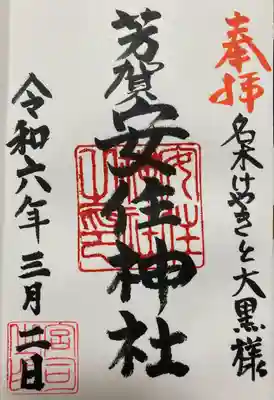 奉拝
名木けやきと大黒様
芳賀
安住神社
令和六年三月二日